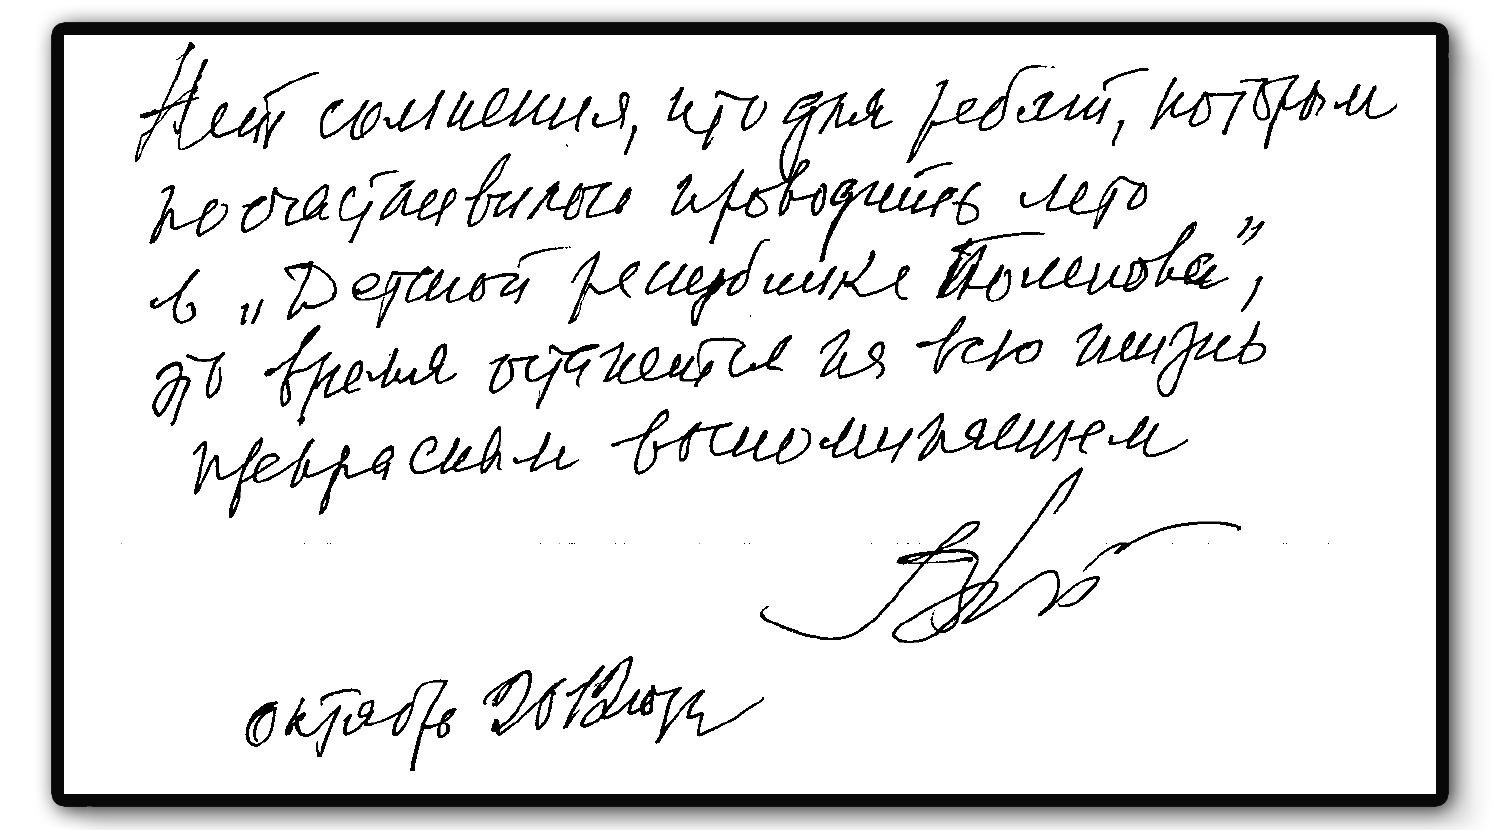 Нет сомнения, что для ребят, которым
посчастливилось проводить лето
в „Детской республике Поленова”,
это время останется на всю жизнь
прекрасным воспоминанием
октябрь 2012 года